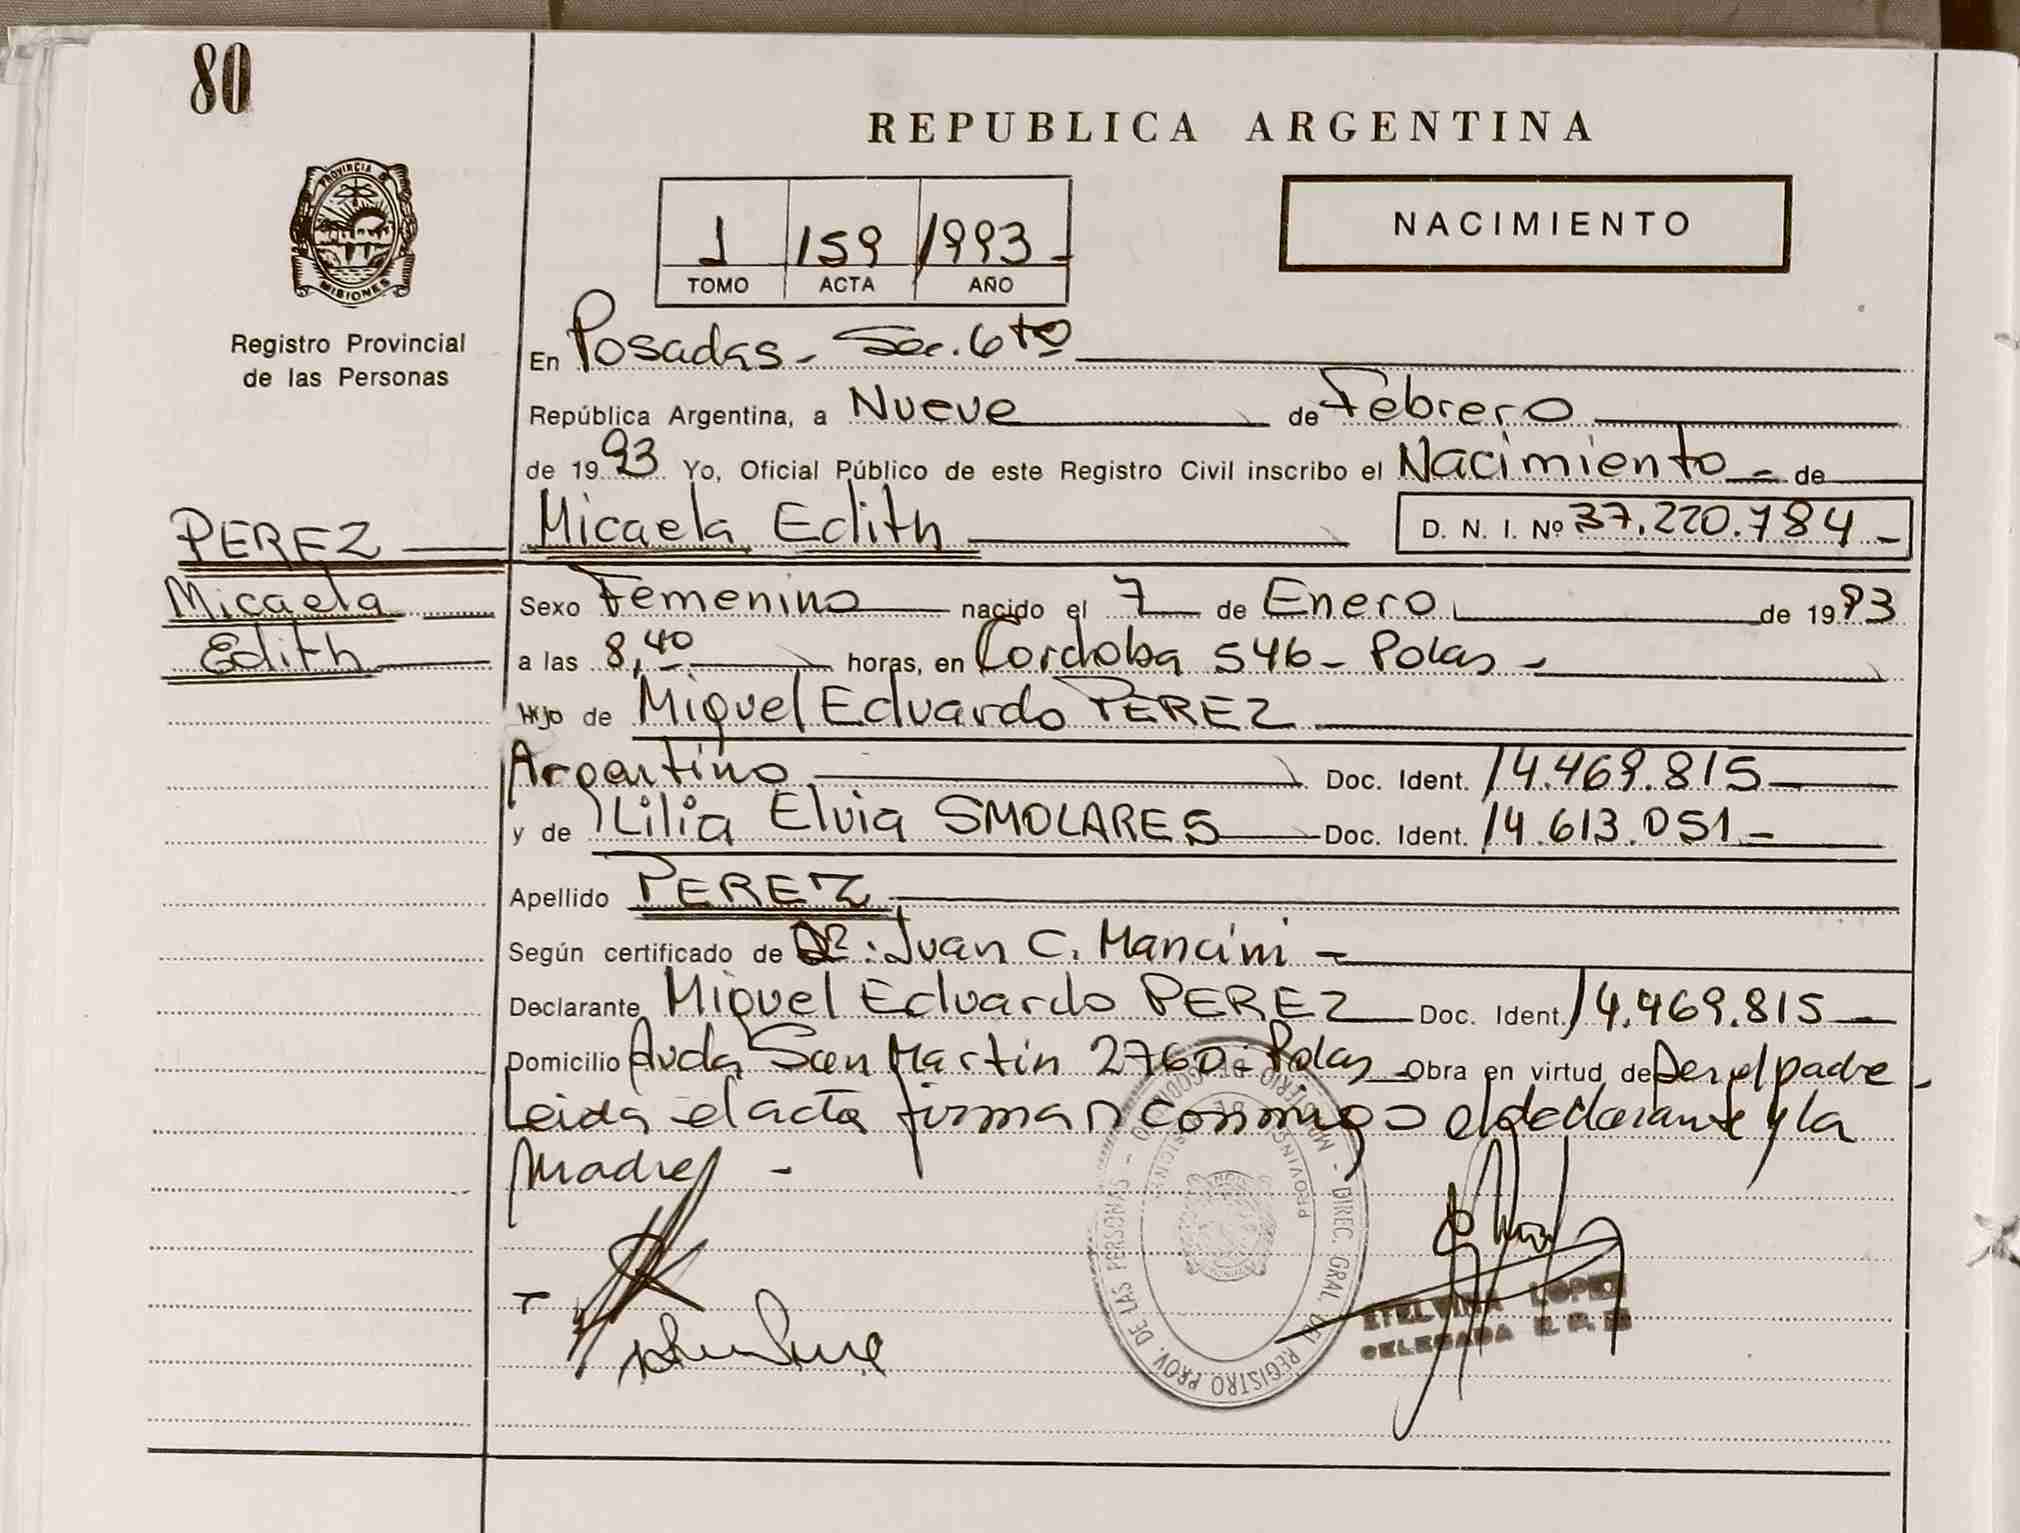 80
REPUBLICA ARGENTINA
PROVINCIA DE
MISIONES
Registro Provincial
de las Personas
1 159 1993
TOMO ACTA AÑO
NACIMIENTO
En Posadas - Sec. 6ta
República Argentina, a Nueve de Febrero
de 1993 Yo, Oficial Público de este Registro Civil inscribo el Nacimiento - de
PEREZ Micaela Edith D. N. I. Nº 37.220.784 -
Micaela
Edith
Sexo Femenino nacido el 7 de Enero de 1993
a las 8,40 horas, en Cordoba 546 - Pdas -
Hijo de Miguel Eduardo PEREZ
Argentino Doc. Ident. 14.469.815
y de Lilia Elvia SMOLARES Doc. Ident. 14.613.051 -
Apellido PEREZ
Según certificado de Dr: Juan C. Mancini -
Declarante Miguel Eduardo PEREZ Doc. Ident. 14.469.815
Domicilio Avda San Martin 2760 - Pdas Obra en virtud de Ser el padre -
Leida el acta firman conmigo el declarante y la
Madre -
DIREC. GRAL. DEL REGISTRO PROV. DE LAS PERSONAS -
ETELVINA LOPEZ
DELEGADA R. P.